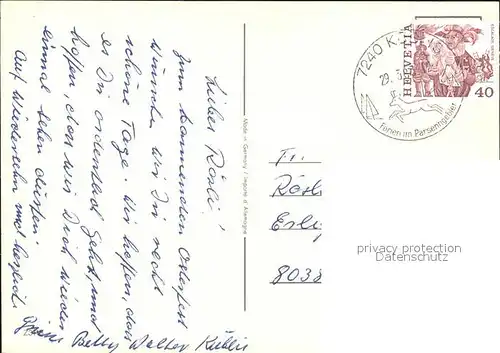 Liebes Rösli!
Zum kommenden Osterfest
wünschen wir Dir recht
schöne Tage. Wir hoffen, dass
es Dir ordentlich geht, und
hoffen, dass wir Dich wieder
einmal sehen dürfen.
Auf Wiedersehn und herzlich
Betty Walter
Made in Germany / Importé d'Allemagne
7240 K
29.3
Ferien im Parsenngebiet
HELVETIA
40
Fr.
Rösl
Erli
8038
privacy protection
Datenschutz